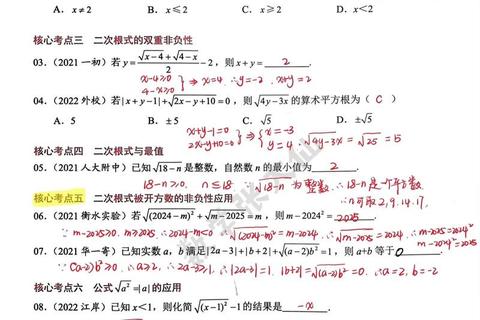 A. x≠2 B. x≤2 C. x≥2 D. x<2
核心考点三 二次根式的双重非负性
03.(2021 一初)若 y=(√(x-4)+√(4-x))/2-2,则 x+y= 2 .
x-4≥0
4-x≥0 ⇒x=4. ∴y=-2 .x+y=2
04.(2022 外校)若|x+y-1|+√(2x-y+10)=0,则√(4y-3x)的算术平方根为( C )
A.5 B.±5 C.√5 D.±√5
x+y-1=0
2x-y+10=0 ⇒ x=-3
y=4 .√(4y-3x)=√25=5
核心考点四 二次根式与最值
05.(2021 人大附中)已知√(18-n)是整数,自然数 n 的最小值为 2 .
18-n≥0. n≤18 ∵√(18-n)为整数.∴18-n是个平方数
∴n可取2,9,14,17.
核心考点五 二次根式被开方数的非负性应用
06.(2021 衡水实验)若√((2024-m)²)+√(m-2025)=m,则 m-2024²= 2025 .
∵m-2025≥0. m≥2025 ∴2024-m<0 ∴√((2024-m)²)=m-2024 ∴m-2024+√(m-2025)=m ∴m-2025=2024²
m-2024²=2025
07.(2021 华一寄)已知实数 a,b 满足|2a-3|+|b+2|+√((a-2)b²)=1,则 a+b 等于 0 .
∵(a-2)b²≥0 ∴a≥2. ∴2a-3≥1. ∴|2a-3|=1. |b+2|=√((a-2)b²)=0 ∴a=2, b=-2
核心考点六 公式√a²=|a|的应用
08.(2022 江岸)已知 x<1,则化简√((x-1)²)-1的结果是 -x .